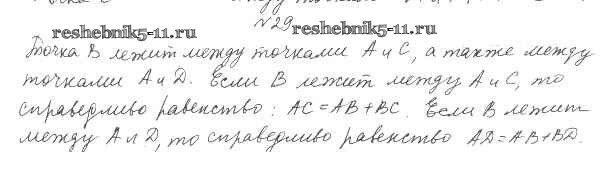 №29
reshebnik5-11.ru reshebnik5-11.ru
Точка В лежит между точками А и С, а также между
точками А и D. Если В лежит между А и С, то
справедливо равенство: AC = AB + BC. Если В лежит
между А и D, то справедливо равенство AD = AB + BD.